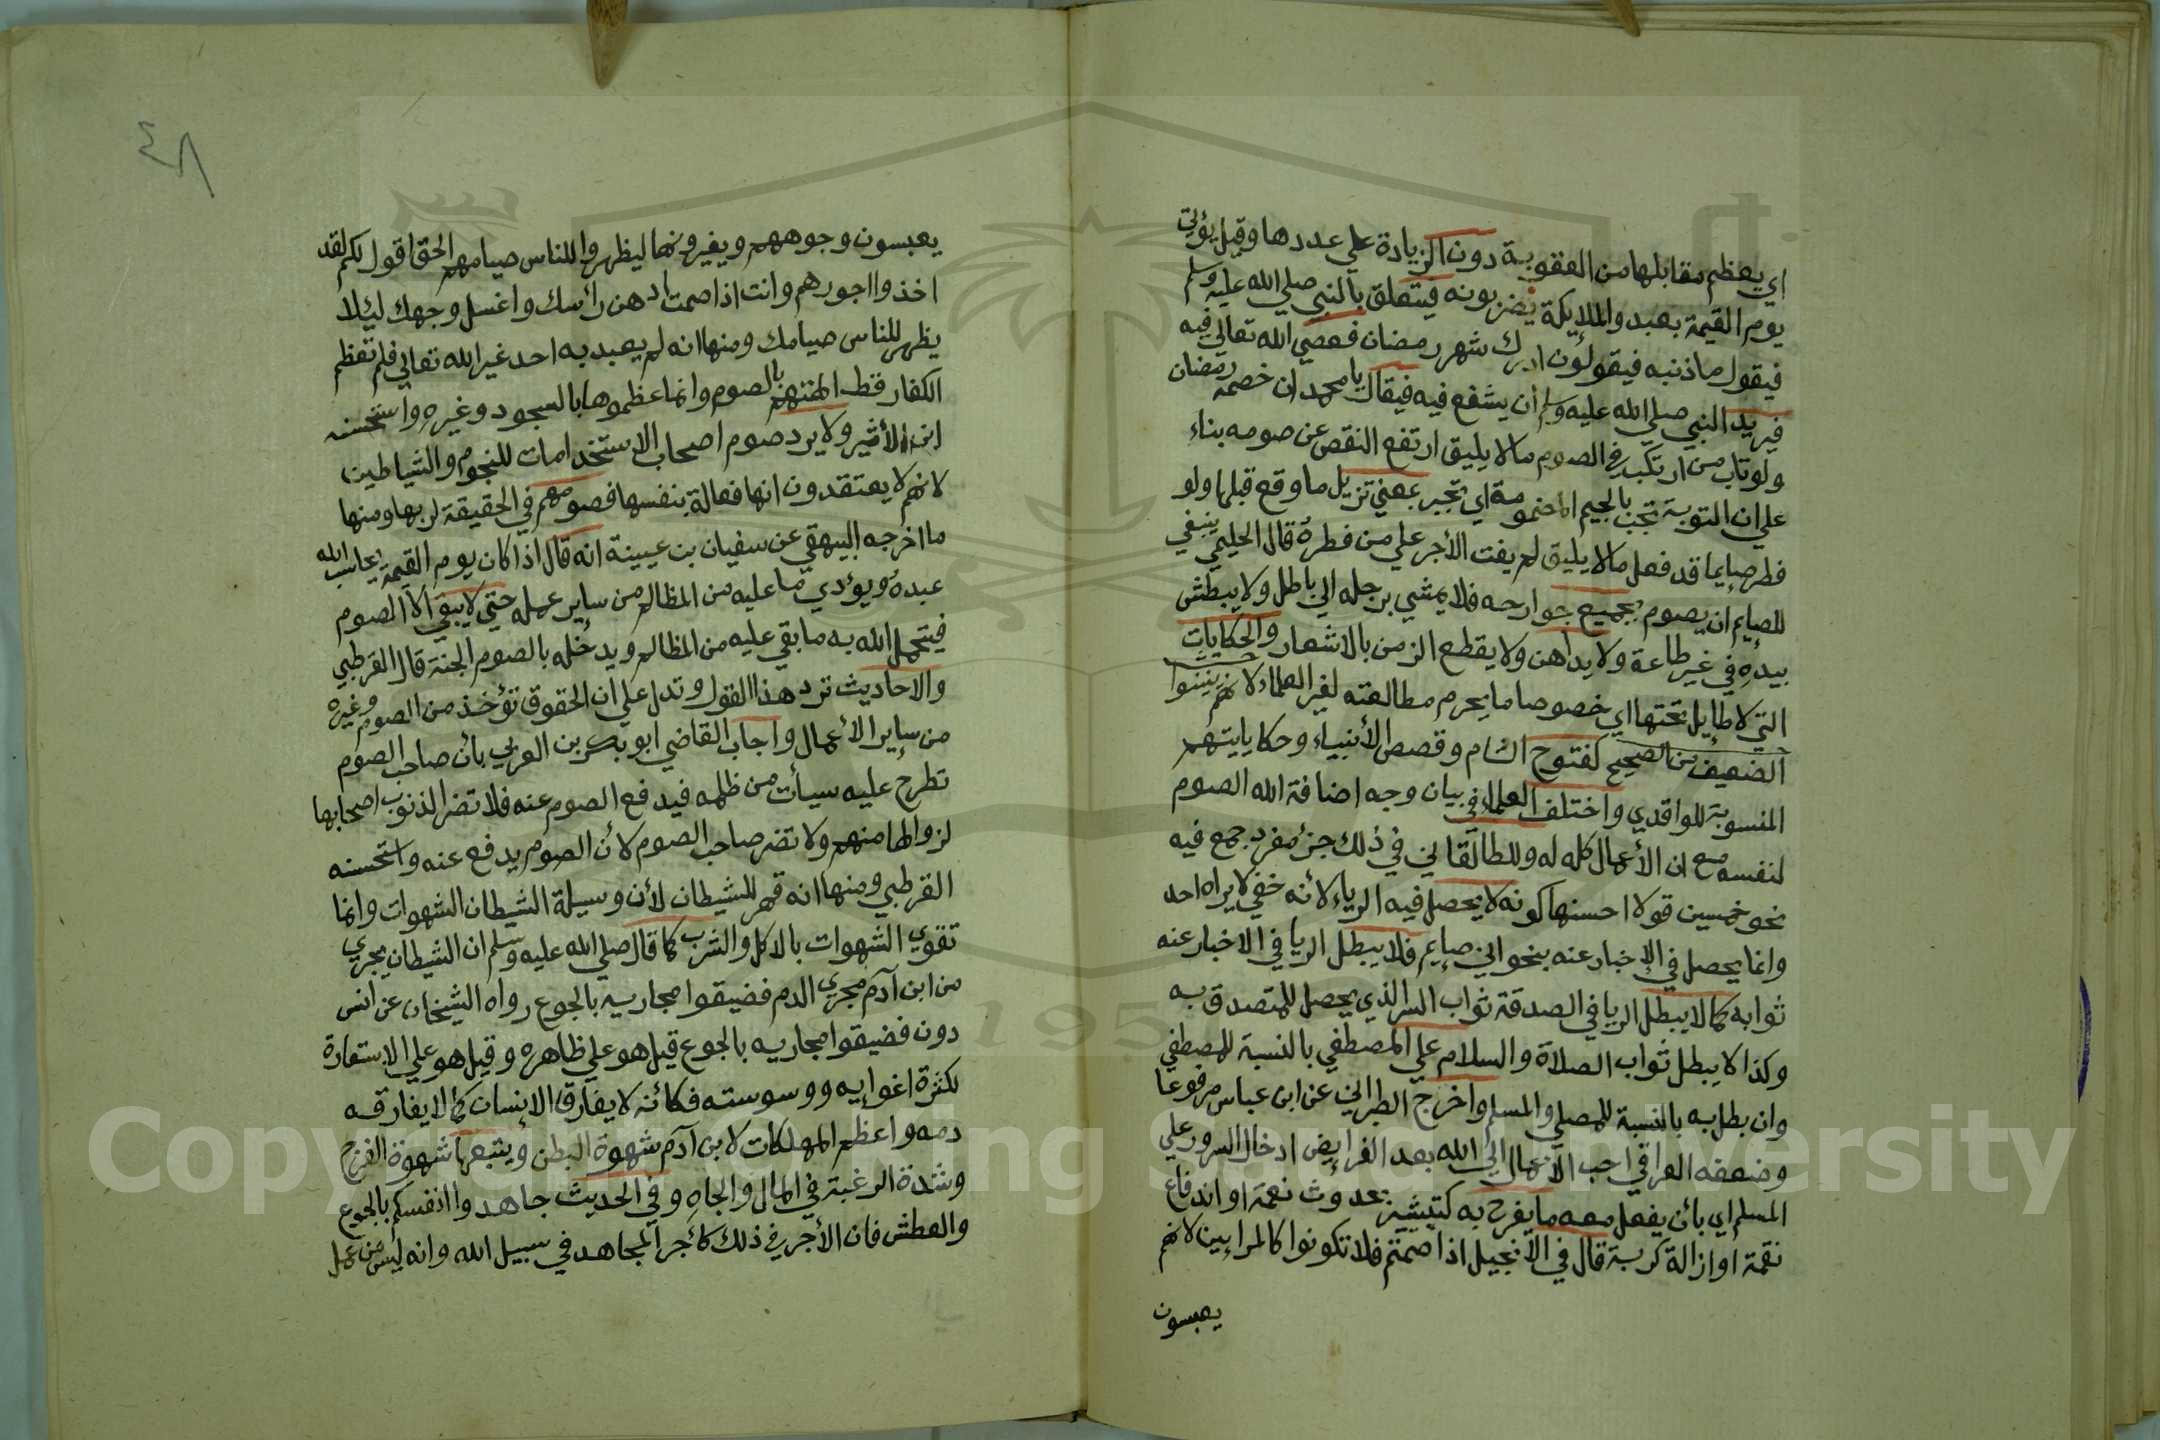 اي يعظم مقابلها من العقوبة دون الزيادة علي عددها وقيل يؤتي
يوم القيمة بعبد والملايكة يضربونه فيتعلق بالنبي صلي الله عليه وسلم
فيقول ما ذنبه فيقولون ادرك شهر رمضان فعصي الله تعالي فيه
فيريد النبي صلي الله عليه وسلم أن يشفع فيه فيقال يا محمد ان خصمه رمضان
ولو تاب من ارتكب في الصوم ما لا يليق ارتفع النقص عن صومه بناء
علي ان التوبة تجب بالجيم المضمومة اي تجبر بمعني تزيل ما وقع قبلها ولو
فطر صايما قد فعل ما لا يليق لم يفت الأجر علي من فطره قال الحليمي ينبغي
للصايم ان يصوم بجميع جوارحه فلا يمشي برجله الي باطل ولا يبطش
بيده في غير طاعة ولا يداهن ولا يقطع الزمن بالاشعار والحكايات
التي لا طايل تحتها اي خصوصا ما يحرم مطالعته لغير العلماء لانهم يبينوا
الضعيف من الصحيح كفتوح الشام وقصص الأنبياء وحكاياتهم
المنسوبة للواقدي واختلف العلماء في بيان وجه اضافة الله الصوم
لنفسه مع ان الأعمال كله له وللطالقاني في ذلك جزء مفرد جمع فيه
نحو خمسين قولا احسنها كونه لا يحصل فيه الرياء لأنه خفي لا يراه احد
وانما يحصل في الإخبار عنه بنحو اني صايم فلا يبطل الريا في الاخبار عنه
ثوابه كما لا يبطل الريا في الصدقة ثواب السر الذي يحصل للمتصدق به
وكذا لا يبطل ثواب الصلاة والسلام علي المصطفي بالنسبة للمصطفي
وان بطل به بالنسبة للمصلي والمسلم واخرج الطبراني عن ابن عباس مرفوعا
وضعفه العراقي احب الأعمال الي الله بعد الفرايض ادخال السرور علي
المسلم اي بأن يفعل معه ما يفرح به كتبشيره بحدوث نعمة او اندفاع
نقمة او ازالة كربة قال في الأنجيل اذا صمتم فلا تكونوا كالمرايين لانهم
يعبسون
٤٨
يعبسون وجوههم ويغيرونها ليظهروا للناس صيامهم الحق اقول لكم لقد
اخذوا اجورهم وانت اذا صمت ادهن رأسك واغسل وجهك ليلا
يظهر للناس صيامك ومنها انه لم يعبد به احد غير الله تعالي فلم تعظم
الكفار قط الهتهم بالصوم وانما عظموها بالسجود وغيره واستحسنه
ابن الأثير ولا يرد صوم اصحاب الاستخدامات للنجوم والشياطين
لانهم لا يعتقدون انها فعالة بنفسها فصومهم في الحقيقة لربها ومنها
ما اخرجه البيهقي عن سفيان بن عيينة انه قال اذا كان يوم القيمة يحاسب الله
عبده ويؤدي ما عليه من المظالم من ساير عمله حتي لا يبقي الا الصوم
فيتحمل الله به ما بقي عليه من المظالم ويدخله بالصوم الجنة قال القرطبي
والاحاديث ترد هذا القول وتدل علي أن الحقوق تؤخذ من الصوم وغيره
من ساير الأعمال واجاب القاضي ابو بكر بن العربي بأن صاحب الصوم
تطرح عليه سيأت من ظلمه فيدفع الصوم عنه فلا تضر الذنوب اصحابها
لزوالها منهم ولا تضر صاحب الصوم لأن الصوم يدفع عنه واستحسنه
القرطبي ومنها انه قهر للشيطان لأن وسيلة الشيطان الشهوات وانما
تقوي الشهوات بالاكل والشرب كما قال صلي الله عليه وسلم ان الشيطان يجري
من ابن آدم مجري الدم فضيقوا مجاريه بالجوع رواه الشيخان عن أنس
دون فضيقوا مجاريه بالجوع قيل هو علي ظاهره وقيل هو علي الاستعارة
لكثرة اغوايه ووسوسته فكأنه لا يفارق الإنسان كما لا يفارقه
دمه واعظم المهلكات لابن آدم شهوة البطن ويتبعها شهوة الفرج
وشدة الرغبة في المال والجاه وفي الحديث جاهدوا انفسكم بالجوع
والعطش فان الأجر في ذلك كأجر المجاهد في سبيل الله وانه ليس من عمل
Copyright © King Saud University
1957